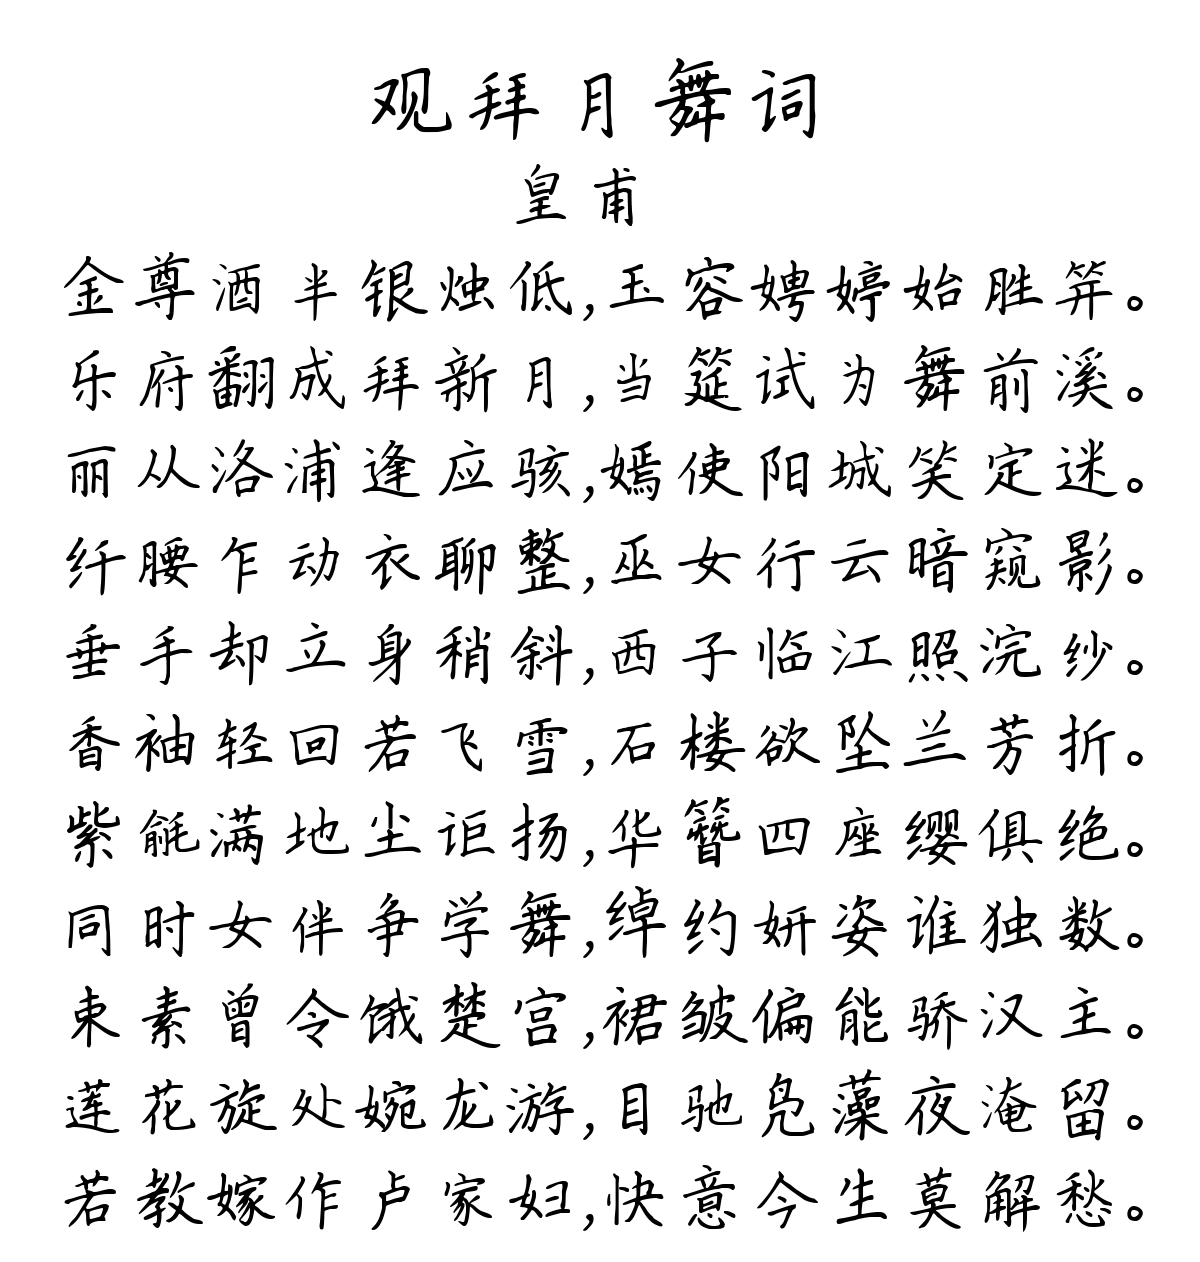 观拜月舞词
皇甫
金尊酒半银烛低,玉容娉婷始胜笄。
乐府翻成拜新月,当筵试为舞前溪。
丽从洛浦逢应骇,嫣使阳城笑定迷。
纤腰乍动衣聊整,巫女行云暗窥影。
垂手却立身稍斜,西子临江照浣纱。
香袖轻回若飞雪,石楼欲坠兰芳折。
紫毹满地尘讵扬,华簪四座缨俱绝。
同时女伴争学舞,绰约妍姿谁独数。
束素曾令饿楚宫,裙皱偏能骄汉主。
莲花旋处婉龙游,目驰凫藻夜淹留。
若教嫁作卢家妇,快意今生莫解愁。